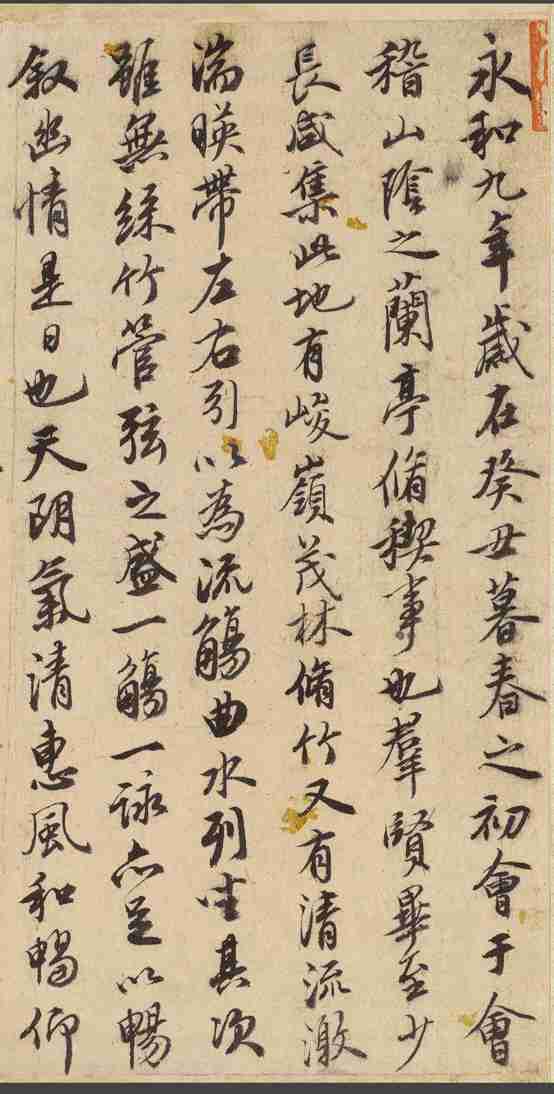 永和九年歲在癸丑暮春之初會于會
稽山陰之蘭亭脩稧事也羣賢畢至少
長咸集此地有峻嶺茂林脩竹又有清流激
湍暎帶左右引以為流觴曲水列坐其次
雖無絲竹管弦之盛一觴一詠亦足以暢
叙幽情是日也天朗氣清惠風和暢仰